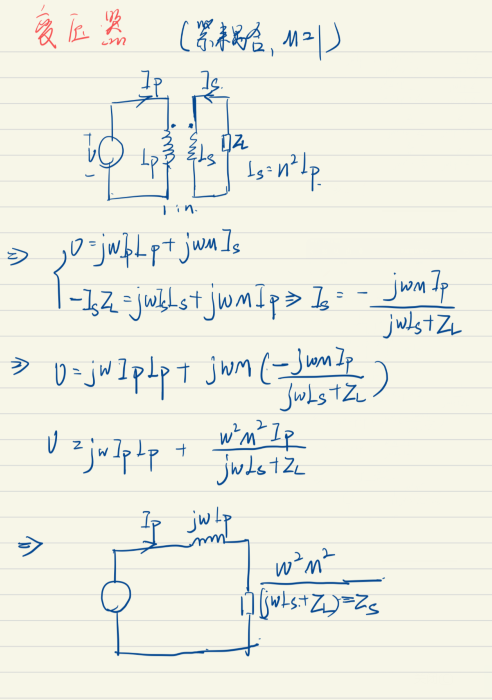 变压器 (紧耦合, M=1)
Ip Is
U Lp Ls ZL Ls=n²Lp.
1:n.
⇒ { U=jwIpLp+jwMIs
-IsZL=jwIsLs+jwMIp ⇒ Is=-\frac{jwMIp}{jwLs+ZL}
⇒ U=jwIpLp+jwM(\frac{-jwMIp}{jwLs+ZL})
U=jwIpLp+\frac{w²M²Ip}{jwLs+ZL}
⇒ Ip jwLp
\frac{w²M²}{(jwLs+ZL)}=Zs